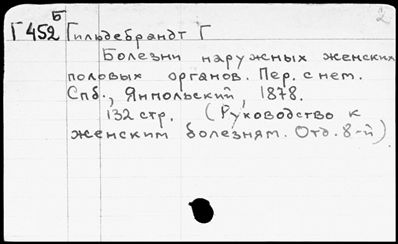 2
Г 452 Б Гильдебрандт Г
Болезни наружных женских
половых органов. Пер. с нем.
Спб., Янпольский, 1878.
132 стр. (Руководство к
женским болезням. Отд. 8-й)